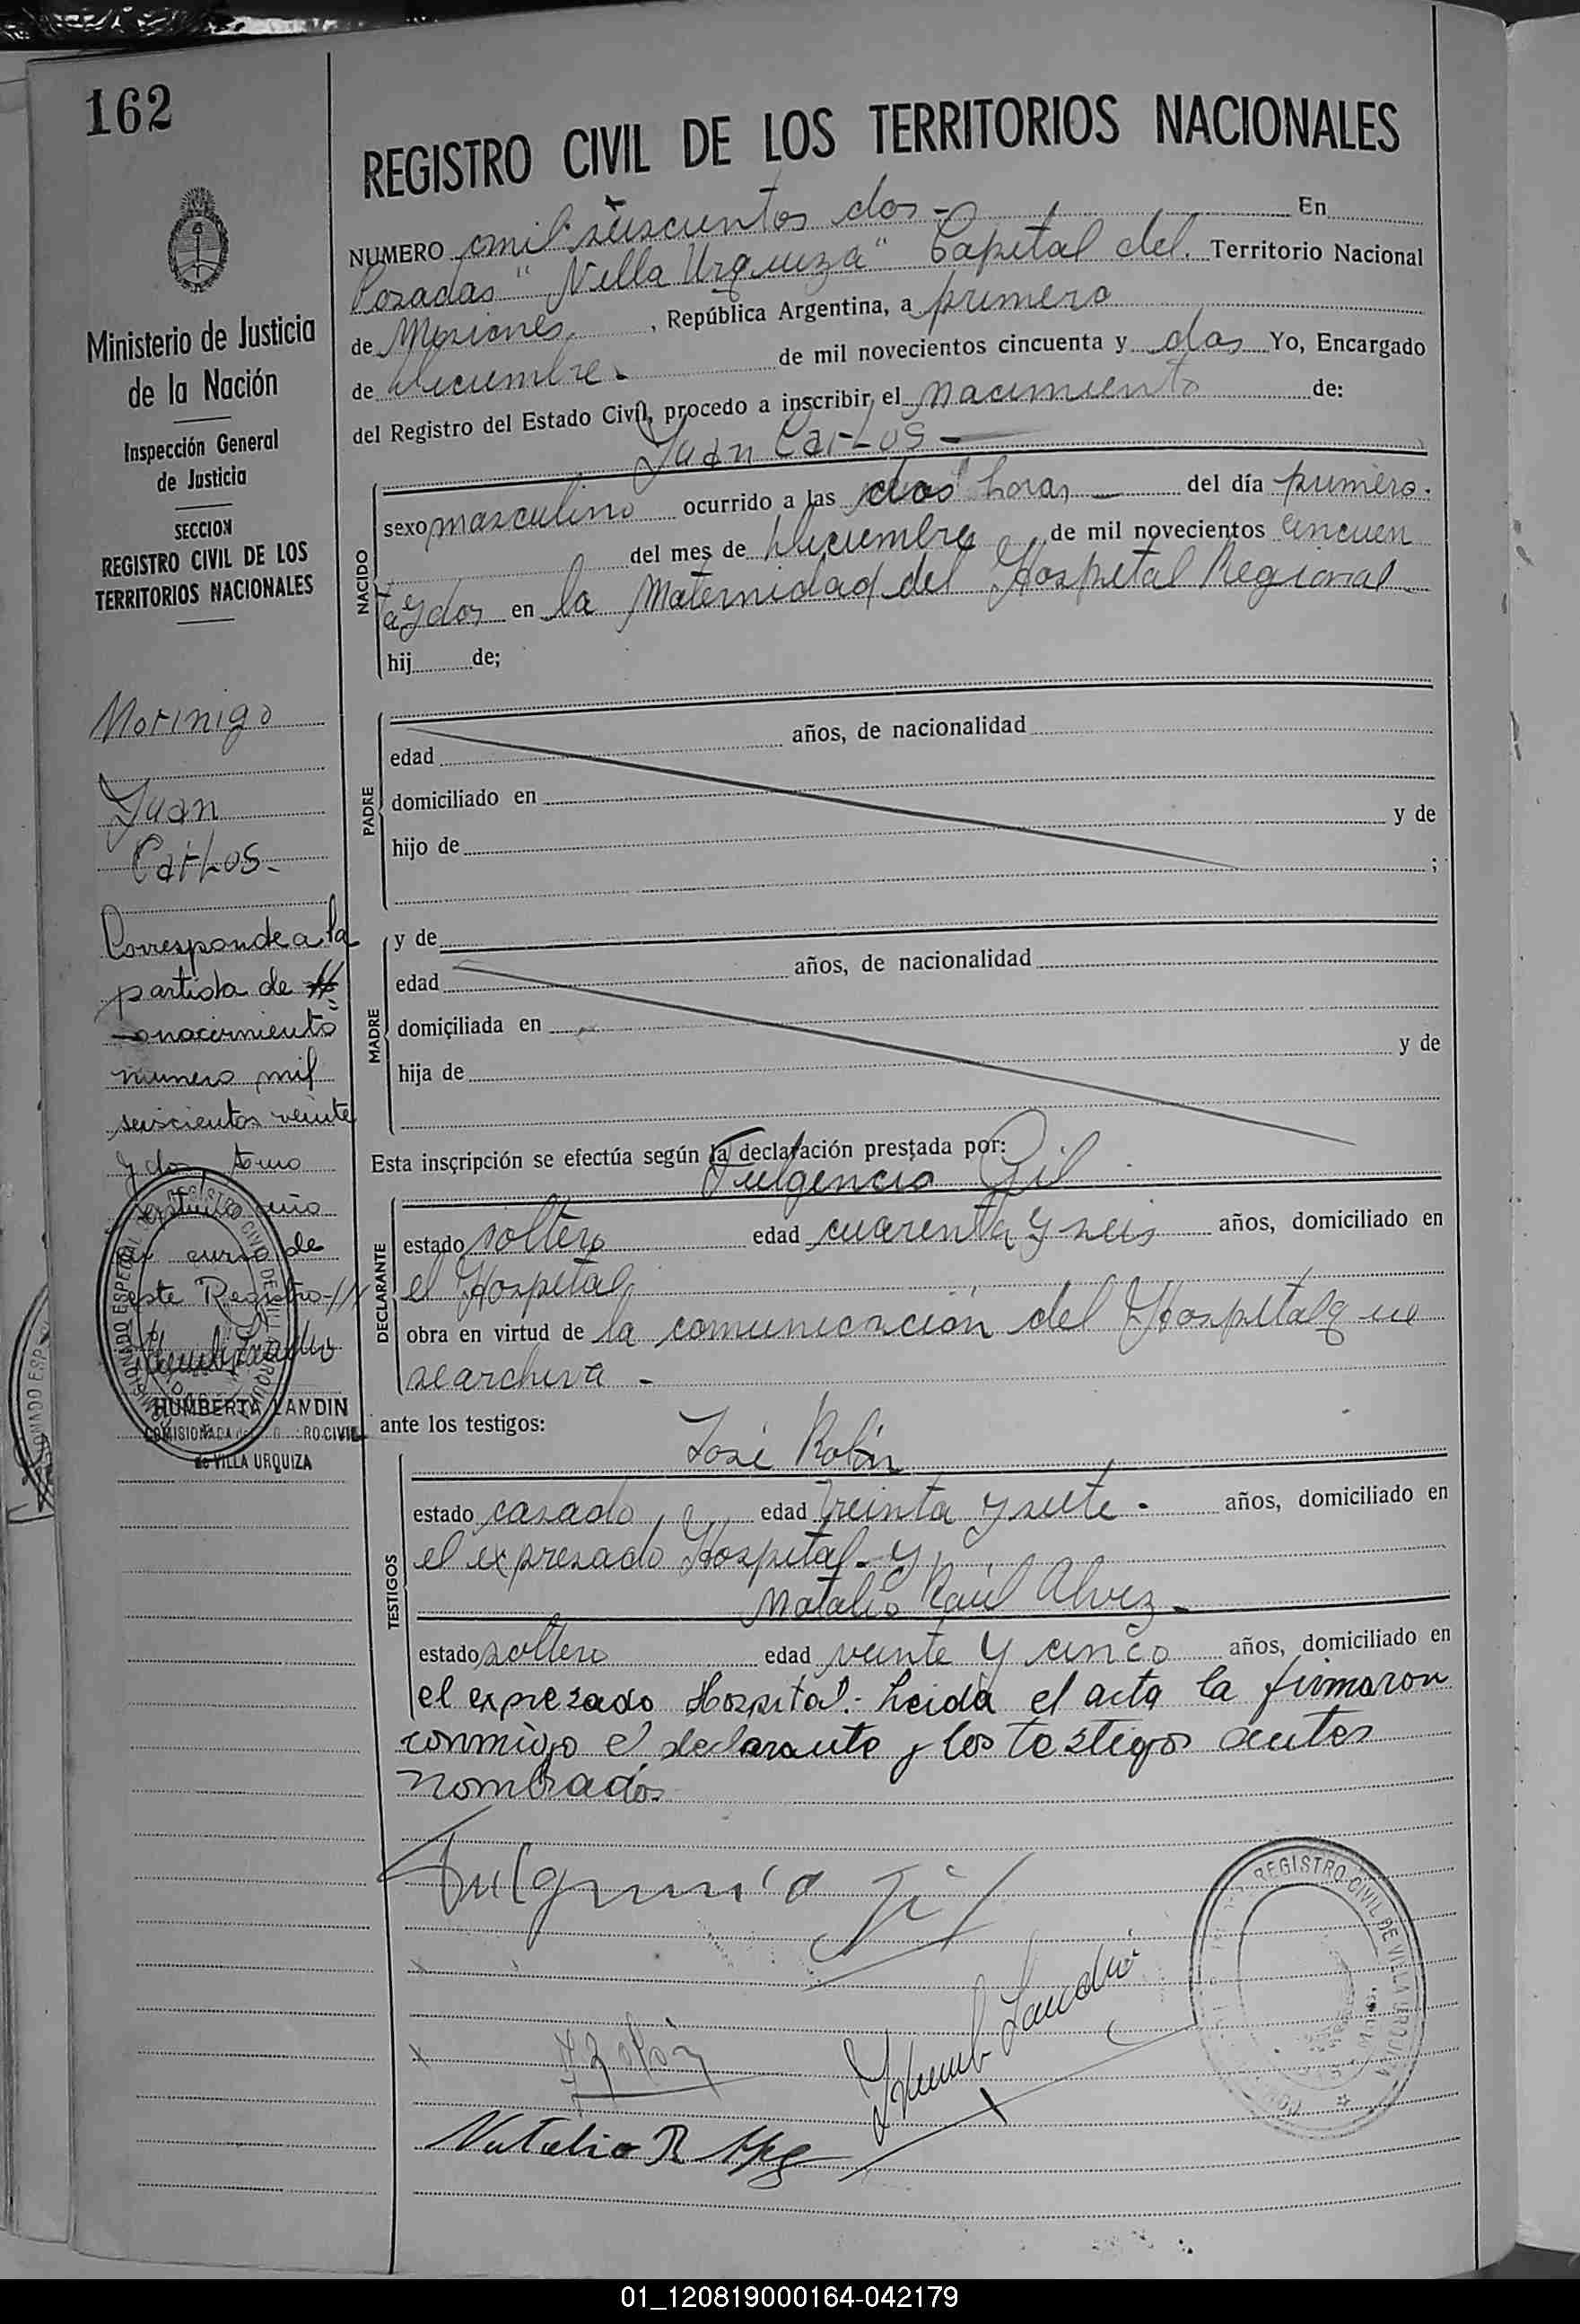 162
REGISTRO CIVIL DE LOS TERRITORIOS NACIONALES
Ministerio de Justicia
de la Nación
Inspección General
de Justicia
SECCION
REGISTRO CIVIL DE LOS
TERRITORIOS NACIONALES
Morinigo
Juan
Carlos-
Corresponde a la
partida de
nacimiento
numero mil
seiscientos veinte
y dos tomo
año
en curso de
este Registro
HUMBERTA LANDIN
COMISIONADA RO CIVIL
de VILLA URQUIZA
NUMERO mil seiscientos dos - En
Posadas "Villa Urquiza" Capital del Territorio Nacional
de Misiones, República Argentina, a primero
de Diciembre. de mil novecientos cincuenta y dos Yo, Encargado
del Registro del Estado Civil, procedo a inscribir el nacimiento de:
Juan Carlos-
NACIDO
sexo masculino ocurrido a las dos horas del día primero.
del mes de Diciembre de mil novecientos cincuen
ta y dos en la Maternidad del Hospital Regional
hij de;
PADRE
edad años, de nacionalidad
domiciliado en
hijo de y de
;
MADRE
y de
edad años, de nacionalidad
domiciliada en
hija de y de
Esta inscripción se efectúa según la declaración prestada por:
Fulgencio Gil
DECLARANTE
estado soltero edad cuarenta y seis años, domiciliado en
el Hospital
obra en virtud de la comunicación del Hospital que
se archiva -
ante los testigos:
José Rolón
TESTIGOS
estado casado, edad treinta y siete - años, domiciliado en
el expresado Hospital - y
Natalio Raúl Alvez-
estado soltero edad veinte y cinco años, domiciliado en
el expresado Hospital.- Leida el acta la firmaron
conmigo el declarante y los testigos antes
nombrados
Fulgencio Gil
J Rolón
Humb Landin
Natalio R
REGISTRO CIVIL DE VILLA URQUIZA
01_120819000164-042179